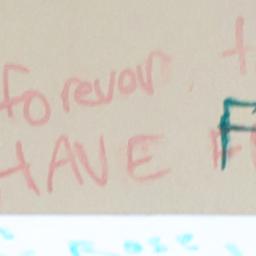 forevor t
HAVE F
Rose